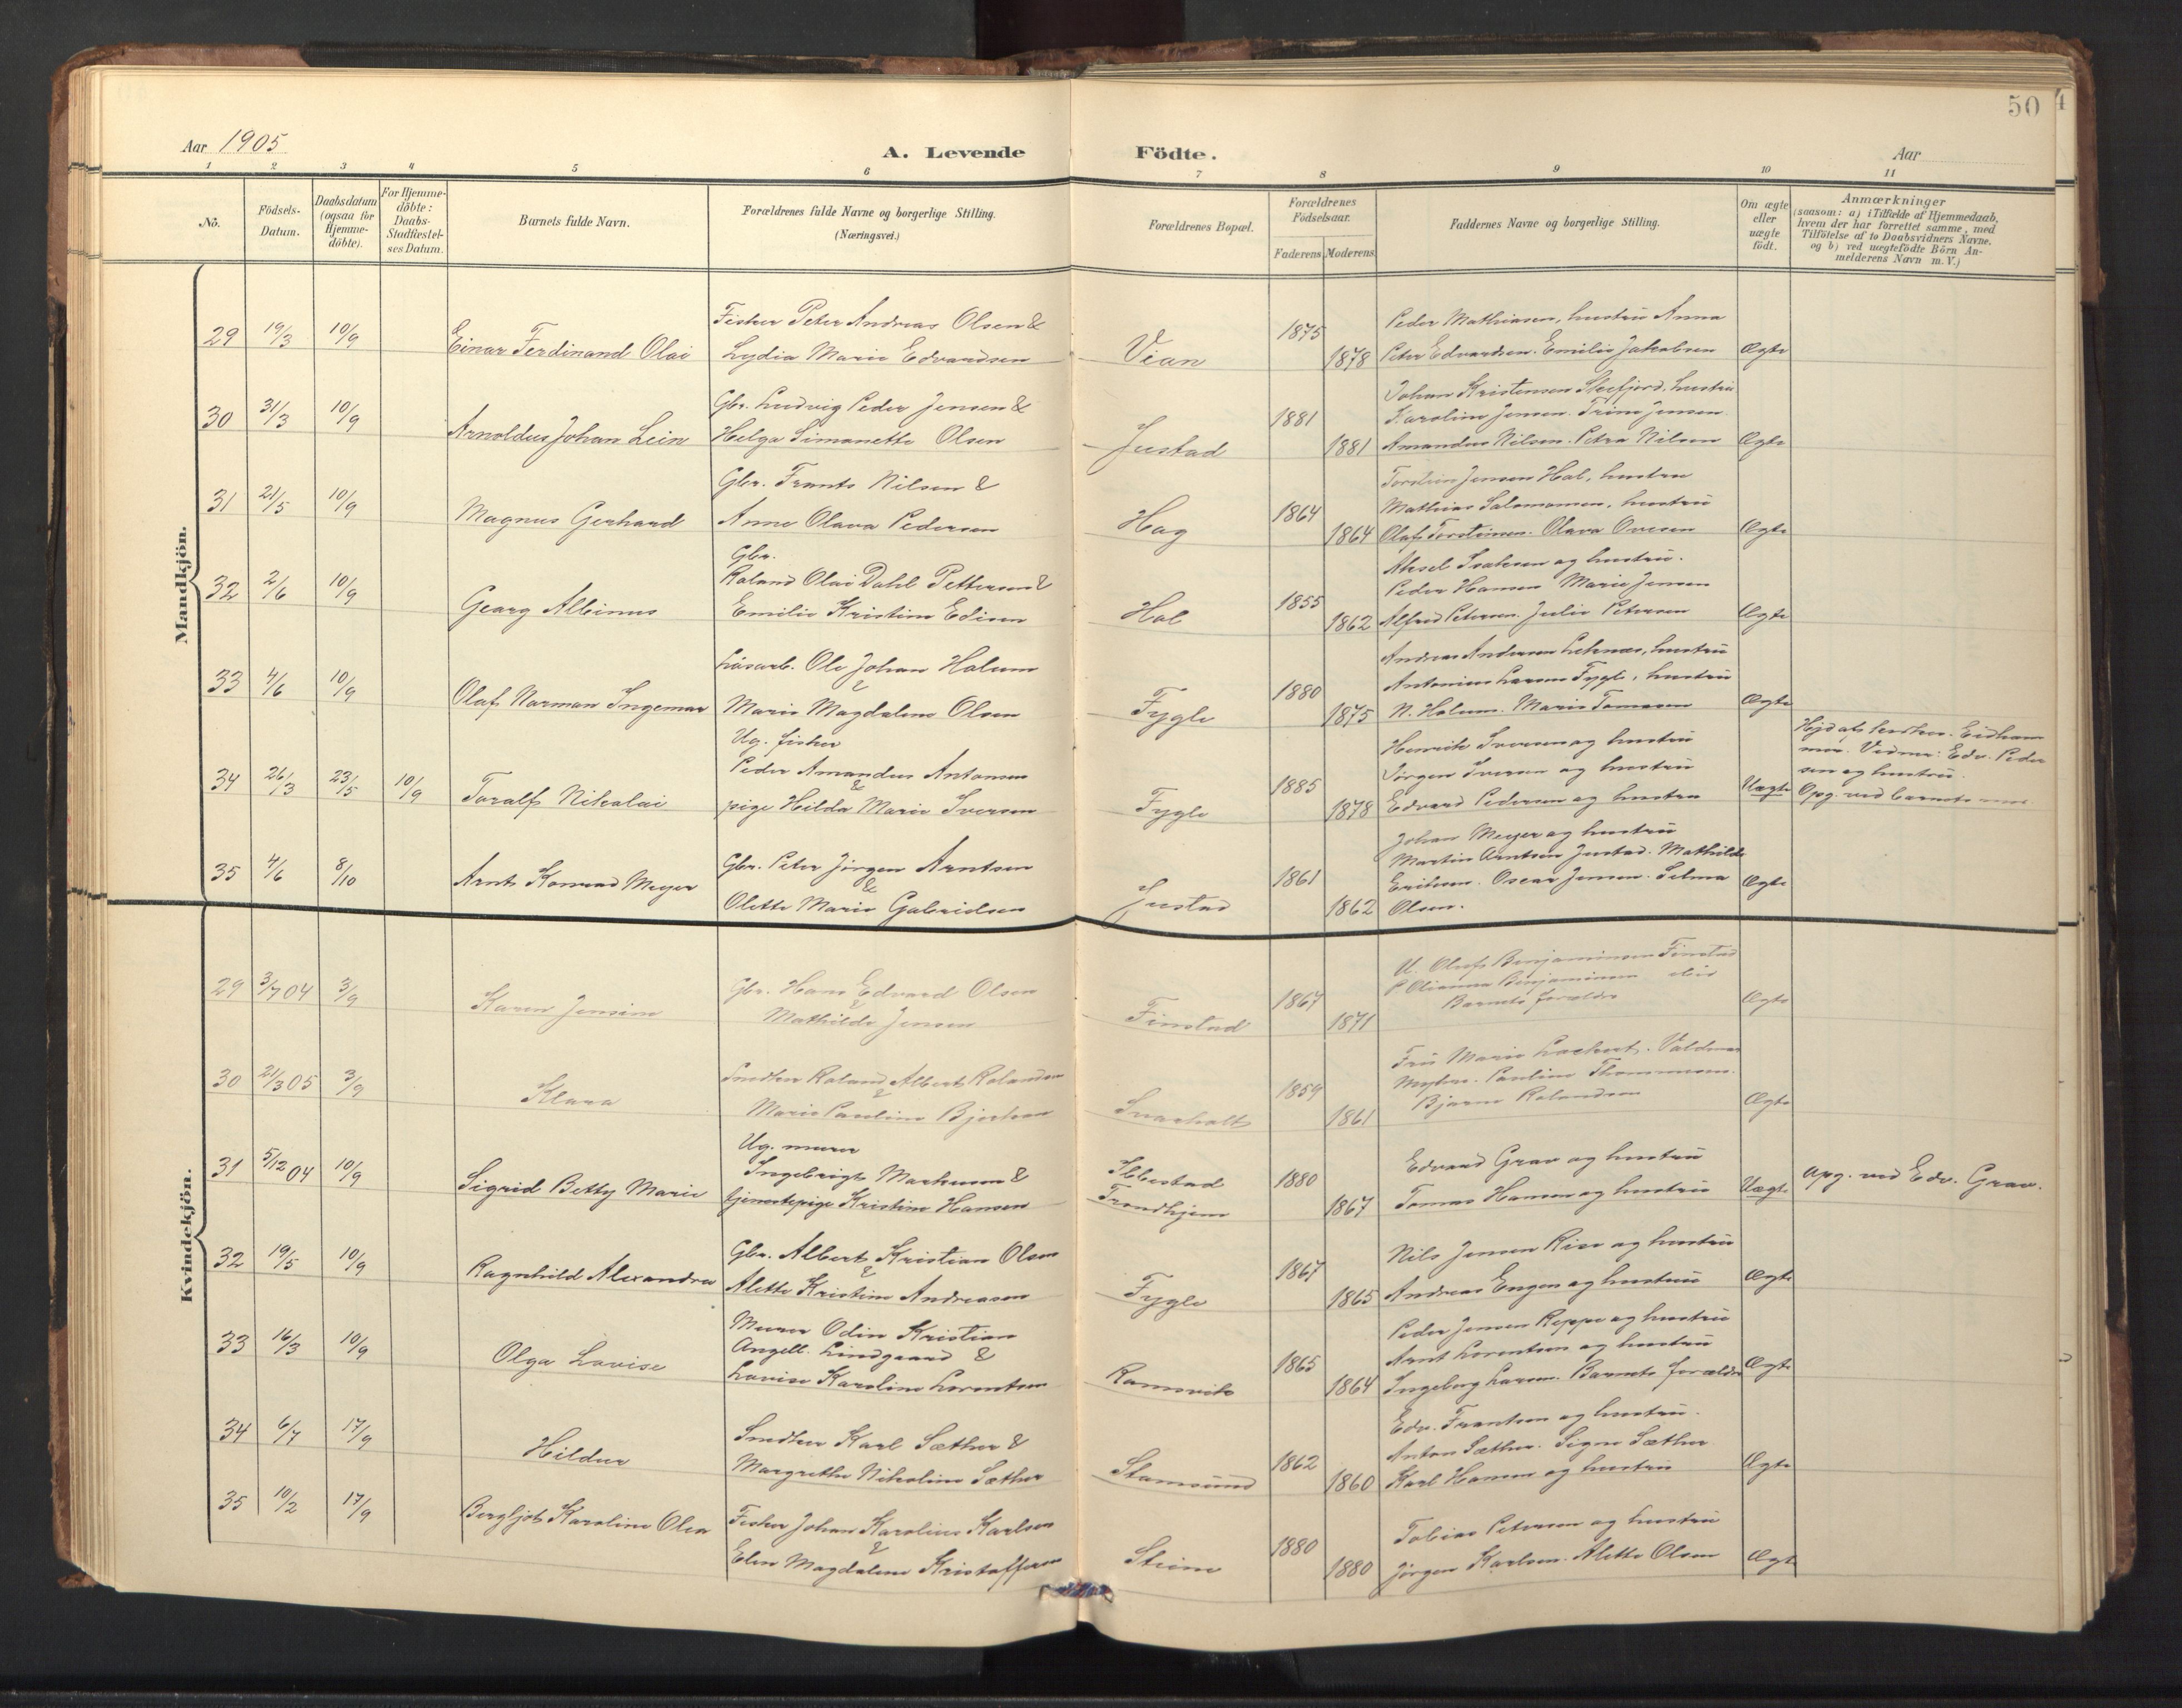 50
Aar 1905
A. Levende Födte.
Aar
1 2 3 4 5 6 7 8 9 10 11
No.
Födsels-
Datum.
Daabsdatum
(ogsaa for
Hjemme-
döbte).
For Hjemme-
döbte:
Daabs-
Stadfæstel-
ses Datum.
Barnets fulde Navn.
Forældrenes fulde Navne og borgerlige Stilling.
(Næringsvei.)
Forældrenes Bopæl.
Forældrenes
Födselsaar.
Faderens Moderens
Faddernes Navne og borgerlige Stilling.
Om ægte
eller
uægte
födt.
Anmærkninger
(saasom: a) i Tilfælde af Hjemmedaab,
hvem der har forrettet samme, med
Tilföielse af to Daabsvidners Navne.
og b) ved uægtefödte Börn An-
melderens Navn m. V.)
Mandkjön.
29 19/3 10/9 Einar Ferdinand Olai
Fisker Peter Andreas Olsen &
Lydia Marie Edvardsen
Vian 1875 1878
Peder Mathiasen, hustru Anna
Peter Edvardsen. Emilie Jakobsen
Ægte
30 31/3 10/9 Arnoldus Johan Lein
Gbr. Ludvig Peder Jensen &
Helga Simonette Olsen
Justad 1881 1881
Johan Kristensen Steefjord, hustru
Karoline Jensen. Trine Jensen
Amandus Nilsen. Petra Nilsen
Ægte
31 21/5 10/9 Magnus Gerhard
Gbr. Frants Nilsen &
Anne Olava Pedersen
Hag 1864 1864
Torstein Jensen Hol, hustru
Mathias Salomonsen, hustru
Olaf Torsteinsen. Olava Ovesen
Ægte
32 2/6 10/9 Georg Albinus
Gbr.
Roland Olai Dahl Pettersen &
Emilie Kristine Edisen
Hol 1855 1862
Aksel Isaksen og hustru.
Peder Hansen Marie Jensen
Alfred Petersen. Julie Petersen
Ægte
33 4/6 10/9 Olaf Norman Ingemar
Løsarb. Ole Johan Holum
&
Marie Magdalene Olsen
Fygle 1880 1875
Andreas Andersen Leknes, hustru
Antonius Larsen Fygle, hustru
N. Holum. Marie Tomasen
Ægte
34 26/3 23/5 10/9 Toralf Nikolai
Ug. fisker
Peder Amandus Antonsen
&
pige Hilda Marie Iversen
Fygle 1885 1878
Henrik Iversen og hustru
Jørgen Iversen og hustru
Edvard Pedersen og hustru
Uægte
Hjd af Eidham
mer. Vidner: Edv. Peder
sen og hustru.
Opg. ved barnets mor.
35 4/6 8/10 Arnt Konrad Meyer
Gbr. Peter Jørgen Arntsen
&
Olette Marie Gabrielsen
Justad 1861 1862
Johan Meyer og hustru
Martin Arntsen Justad. Mathilde
Eriksen. Oscar Jensen. Selma
Olsen.
Ægte
Kvindekjön.
29 3/7 04 3/9 Karen Jensine
Gbr. Hans Edvard Olsen
&
Mathilde Jensen
Finstad 1867 1871
U. Oluf Benjaminsen Finstad
P. Olianna Benjaminsen ibid
Barnets forældre
Ægte
30 21/3 05 3/9 Klara
Snedker Roland Albert Rolandsen
&
Marie Pauline Bjerkan
Svarholt 1859 1861
Fru Marie Lockert. Valdemar
Myhre. Pauline Thommesen.
Bjarne Rolandsen
Ægte
31 5/12 04 10/9 Sigrid Betty Marie
Ug. murer
Ingebrigt Markussen &
tjenestepige Kristine Hansen
Ibbestad
Trondhjem 1880 1867
Edvard Grav og hustru
Tomas Hansen og hustru
Uægte
Opg. ved Edv. Grav.
32 19/5 10/9 Ragnhild Alexandra
Gbr. Albert Kristian Olsen
&
Alette Kristine Andreasen
Fygle 1867 1865
Nils Jensen Rise og hustru
Andreas Engen og hustru
Ægte
33 16/3 10/9 Olga Lovise
Murer Odin Kristian
Angell. Lindgaard &
Lovise Karoline Lorentsen
Ramsvik 1865 1864
Peder Jensen Reppe og hustru
Arnt Lorentsen og hustru
Ingeborg Larsen. Barnets forældre
Ægte
34 6/7 17/9 Hildur
Snedker Karl Sæther &
Margrethe Nikoline Sæther
Stamsund 1862 1860
Edv. Frantsen og hustru.
Anton Sæther. Signe Sæther
Karl Hansen og hustru
Ægte
35 10/2 17/9 Bergljot Karoline Olea
Fisker Johan Karolius Karlsen
&
Elen Magdalene Kristoffersen
Steine 1880 1880
Tobias Petersen og hustru
Jørgen Karlsen. Alette Olsen
Ægte